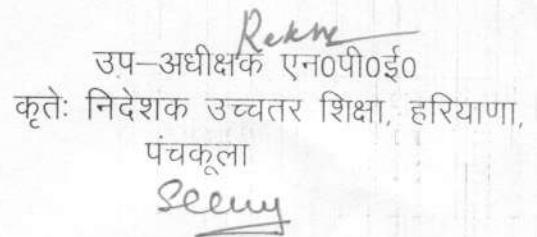 Rekha
उप–अधीक्षक एन0पी0ई0
कृतेः निदेशक उच्चतर शिक्षा, हरियाणा,
पंचकूला